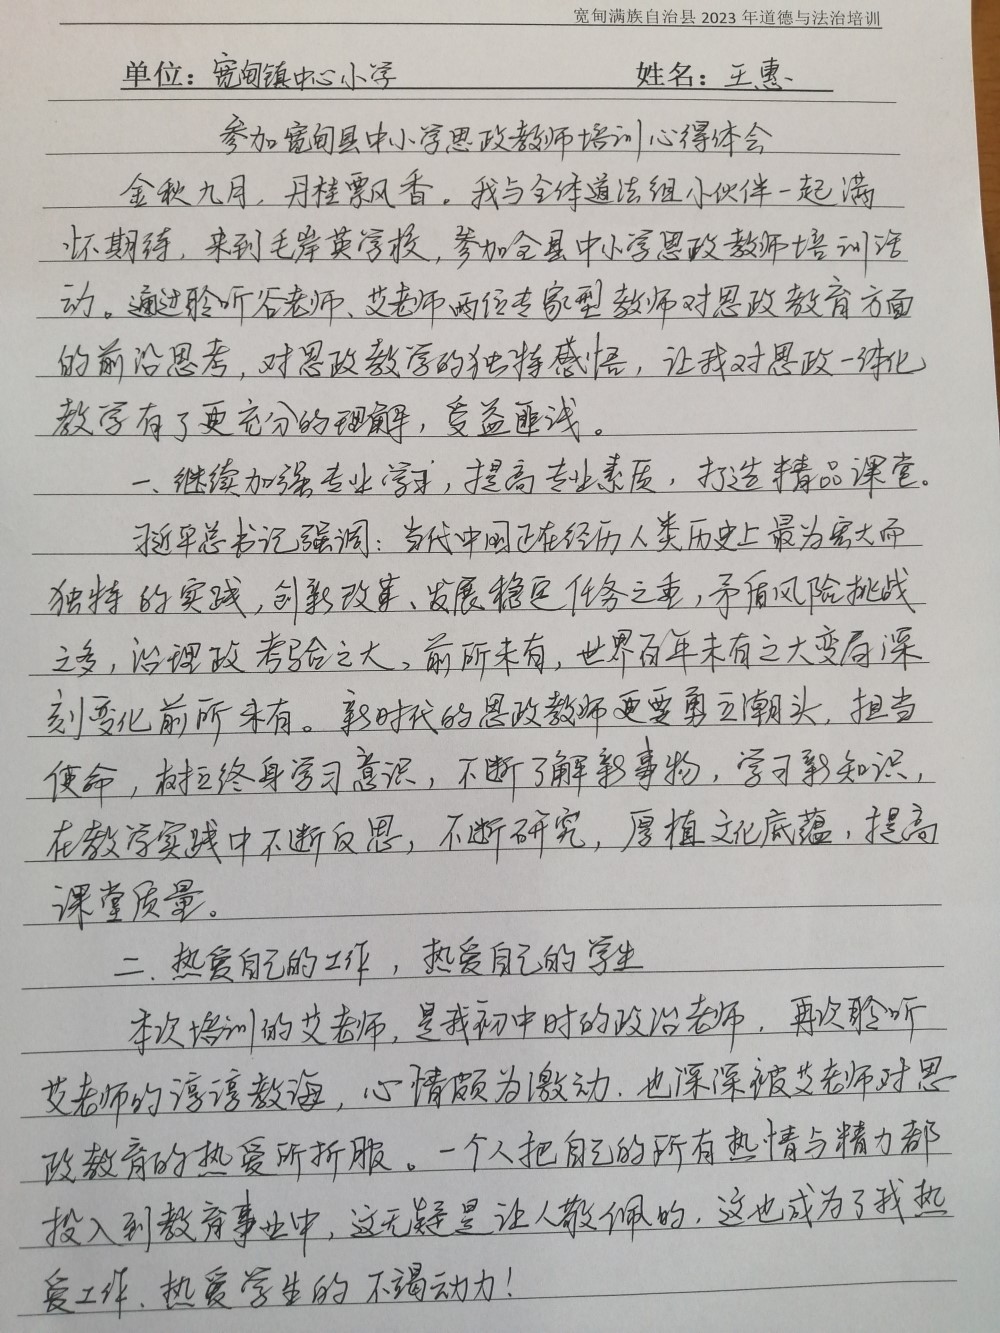 宽甸满族自治县 2023 年道德与法治培训
单位：宽甸镇中心小学 姓名：王惠
参加宽甸县中小学思政教师培训心得体会
金秋九月，丹桂飘香。我与全体道法组小伙伴一起满
怀期待，来到毛岸英学校，参加全县中小学思政教师培训活
动。通过聆听谷老师、艾老师两位专家型教师对思政教育方面
的前沿思考，对思政教学的独特感悟，让我对思政一体化
教学有了更充分的理解，受益匪浅。
一、继续加强专业学习，提高专业素质，打造精品课堂。
习近平总书记强调：当代中国正在经历人类历史上最为宏大而
独特的实践，创新改革、发展稳定任务之重，矛盾风险挑战
之多，治理政考验之大，前所未有，世界百年未有之大变局深
刻变化前所未有。新时代的思政教师更要勇立潮头，担当
使命，树立终身学习意识，不断了解新事物，学习新知识，
在教学实践中不断反思，不断研究，厚植文化底蕴，提高
课堂质量。
二、热爱自己的工作，热爱自己的学生
本次培训的艾老师，是我初中时的政治老师，再次聆听
艾老师的谆谆教诲，心情颇为激动，也深深被艾老师对思
政教育的热爱所折服。一个人把自己的所有热情与精力都
投入到教育事业中，这无疑是让人敬佩的，这也成为了我热
爱工作、热爱学生的不竭动力！